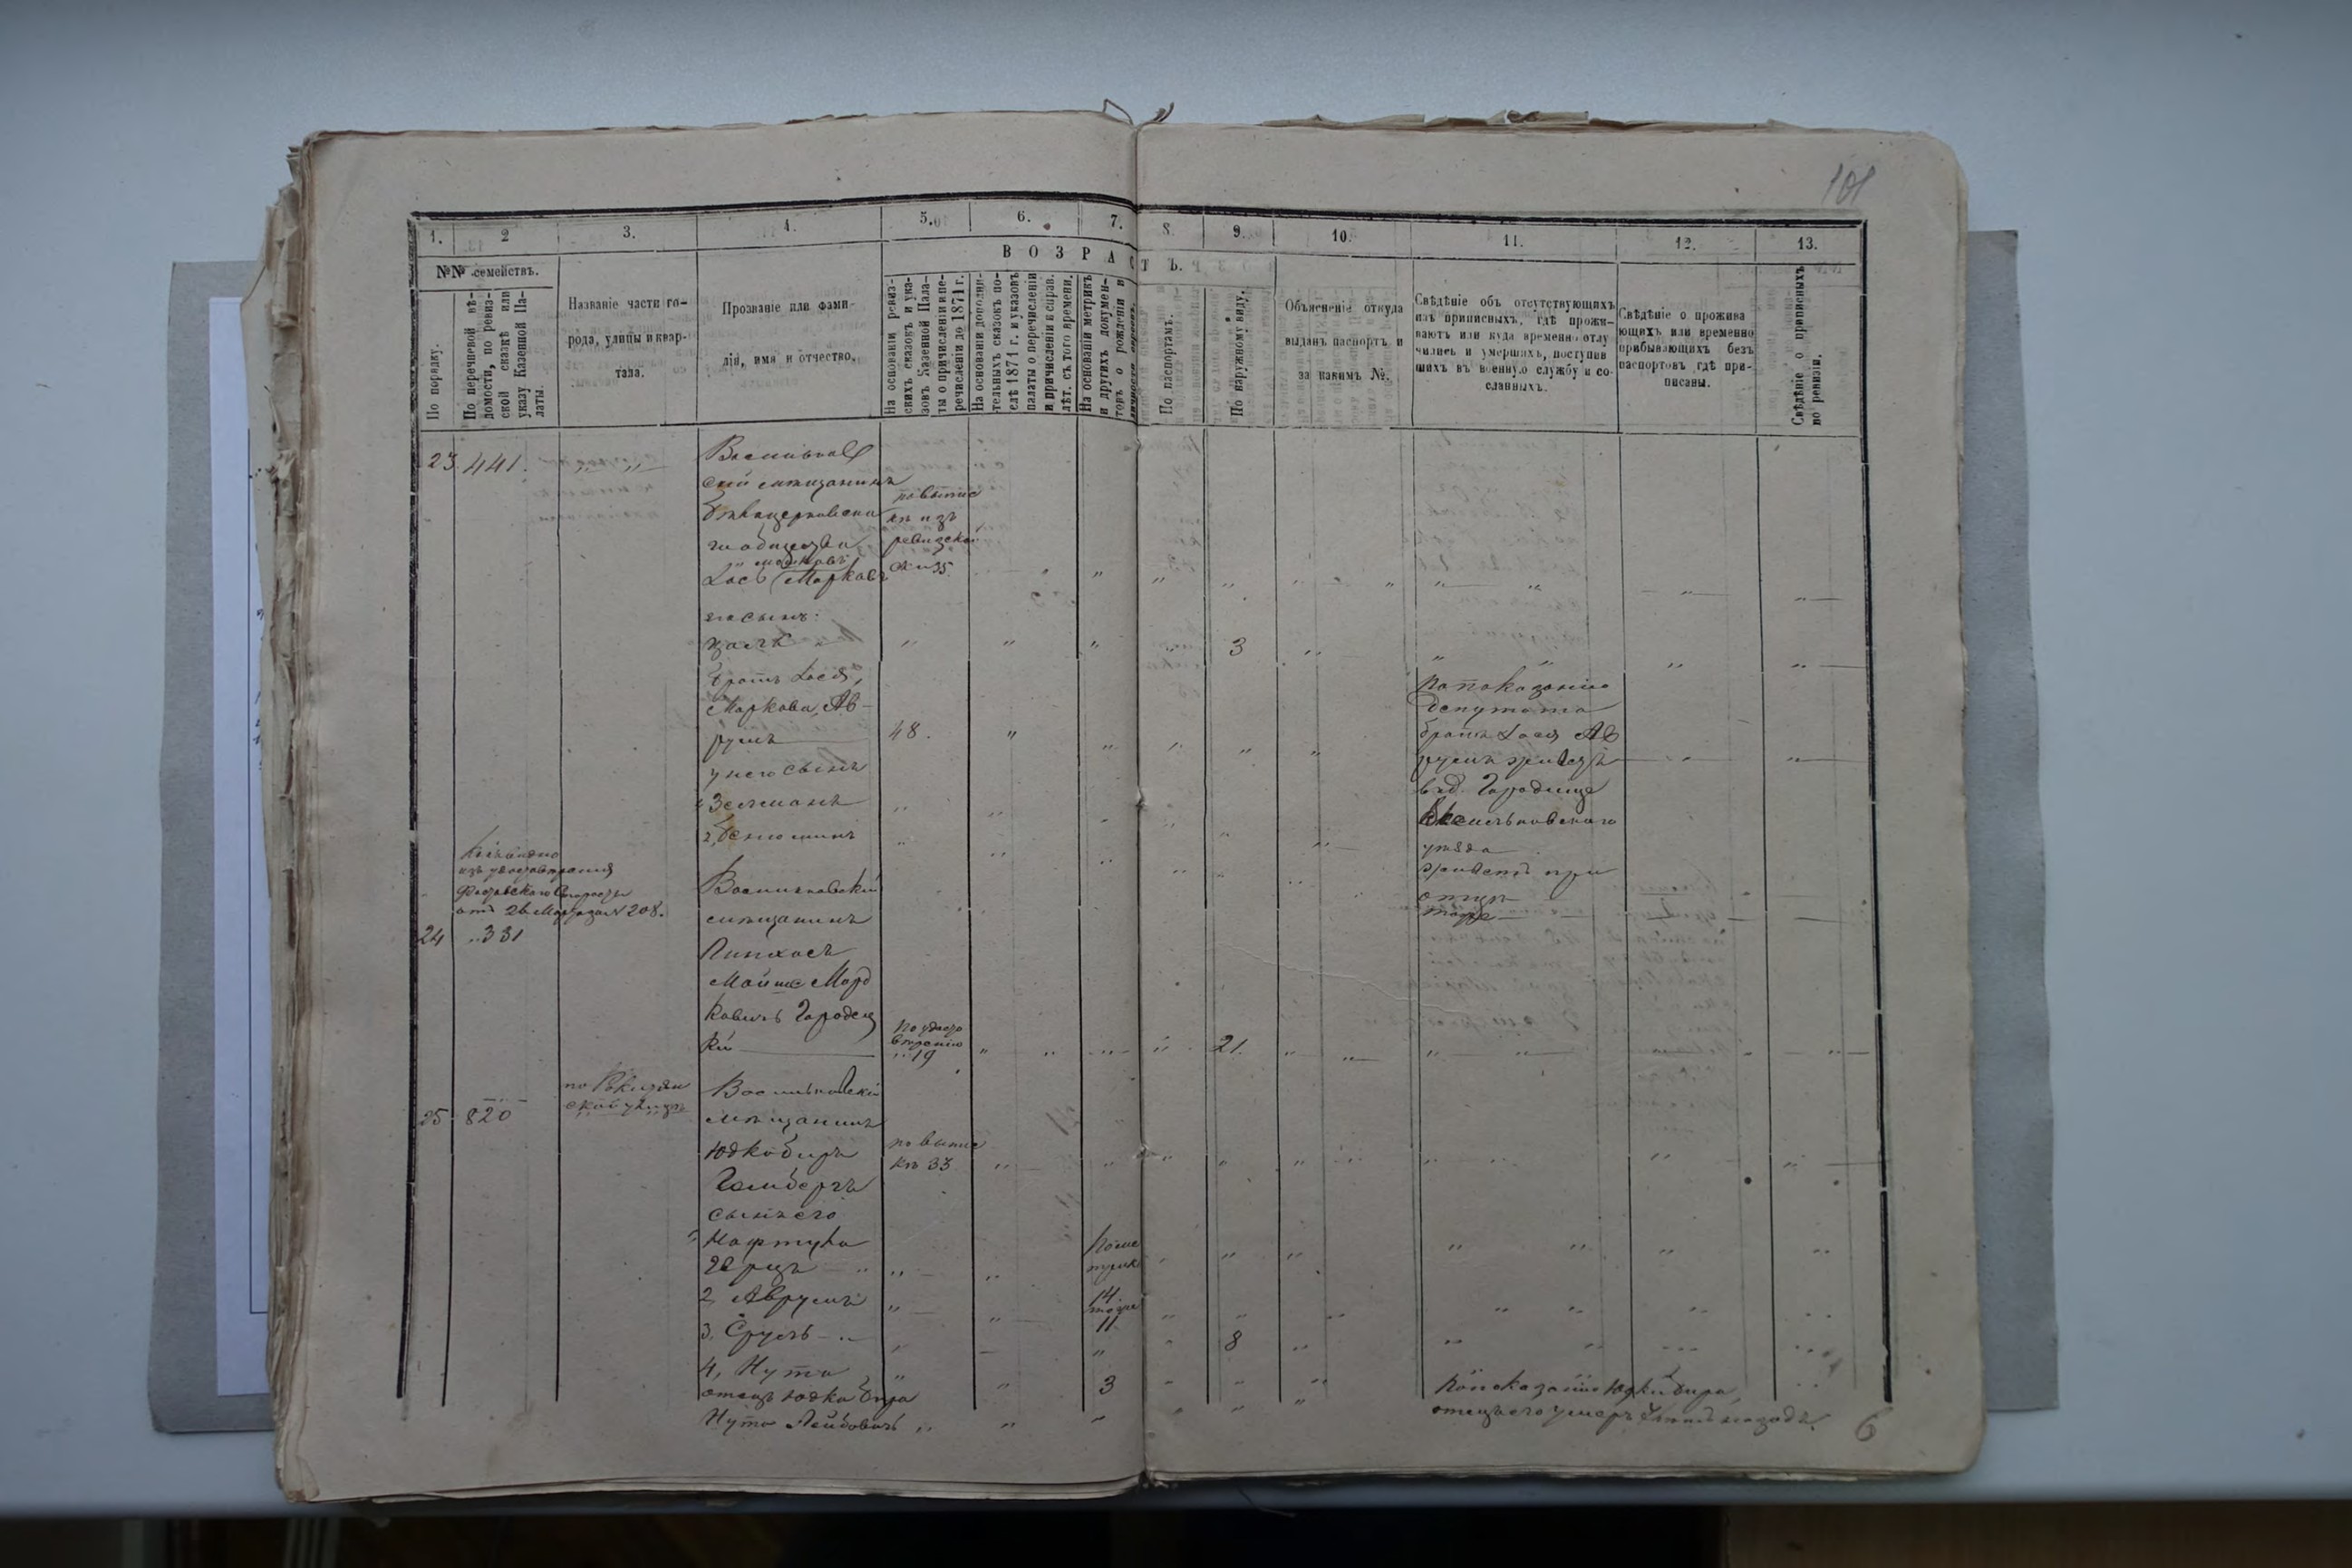 101
1. 2 3. 4. 5. 6. 7. 8. 9. 10. 11. 12. 13.
№№ семействъ.
В О З Р А С Т Ъ.
По порядку.
По перечневой вѣ-
домости, по ревиз-
ской сказкѣ или
указу Казенной Па-
латы.
Названіе части го-
рода, улицы и квар-
тала.
Прозваніе или фами-
лія, имя и отчество.
На основаніи ревиз-
скихъ сказокъ и ука-
зовъ Казенной Пала-
ты о причисленіи и пе-
речисленіи до 1871 г.
На основаніи дополни-
тельныхъ сказокъ по-
слѣ 1871 г. и указовъ
палаты о перечисленіи
и причисленіи к справ.
лѣт. съ того времени.
На основаніи метрикъ
и другихъ докумен-
товъ о рожденіи и
По паспортамъ.
По наружному виду.
Объясненіе откуда
выданъ паспортъ и
за какимъ №.
Свѣдѣніе объ отсутствующихъ
изъ приписныхъ, гдѣ прожи-
ваютъ или куда временно отлу
чились и умершихъ, поступив
шихъ въ военную службу и со-
сланныхъ.
Свѣдѣніе о прожива
ющихъ или временно
прибывающихъ безъ
паспортовъ гдѣ при-
писаны.
Свѣдѣніе о приписныхъ
по ревизіи.
23. 441. Васильков
скій мѣщанинъ
Бѣлоцерковска
го общества
Лось Марковъ
по выпис
кѣ изъ
ревизской
35
его сынъ:
3
братъ Лося,
Маркова, Ав-
румъ 48.
у него сынъ
Зельманъ
2, Беньоминъ
По показанію
депутата
братъ Лося Ав
румъ живетъ
в д. Городище
Васильковскаго
уѣзда
живетъ при
отцѣ
тоже
Какъ видно
изъ удостовѣренія
от 26 Марта за № 208.
24 331
Васильковскій
мѣщанинъ
Пинхосъ
Мойше Морд
ковичъ Городец
кій
По удосто
вѣренію
19 21.
25 820 по
ской улицѣ
Васильковскій
мѣщанинъ
Юдко Бера
Гольберъ
по выпис
кѣ 33
сынъ его
1, Нафтула
Герцъ
По ме
трикѣ
14
2, Аврумъ
тоже
11
3. Сруль 8
4, Нута 3
отецъ Юдка Бера
Нута Лейбовичъ
По показанію Юдки Бера,
отецъ его умеръ лѣтъ назадъ.
6